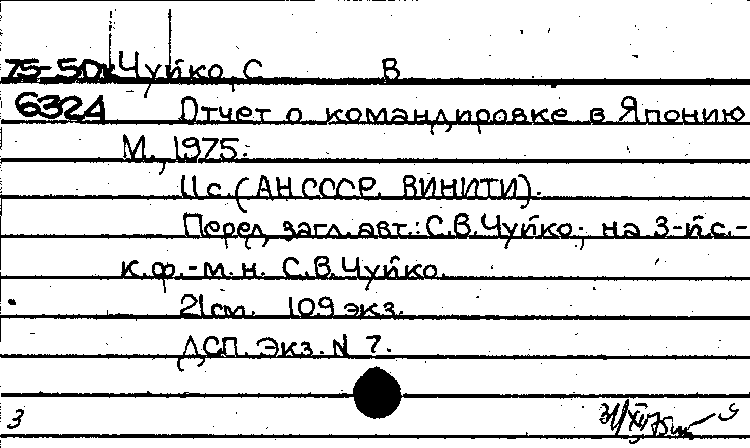 75-5Дк Чуйко, С В
6324 Отчет о командировке в Японию
М., 1975.
11с. (АН СССР. ВИНИТИ).
Перед загл. авт.: С.В.Чуйко; на 3-й с.-
к.ф.-м.н. С.В.Чуйко.
21см. 109 экз.
ДСП. Экз. N 7.
3